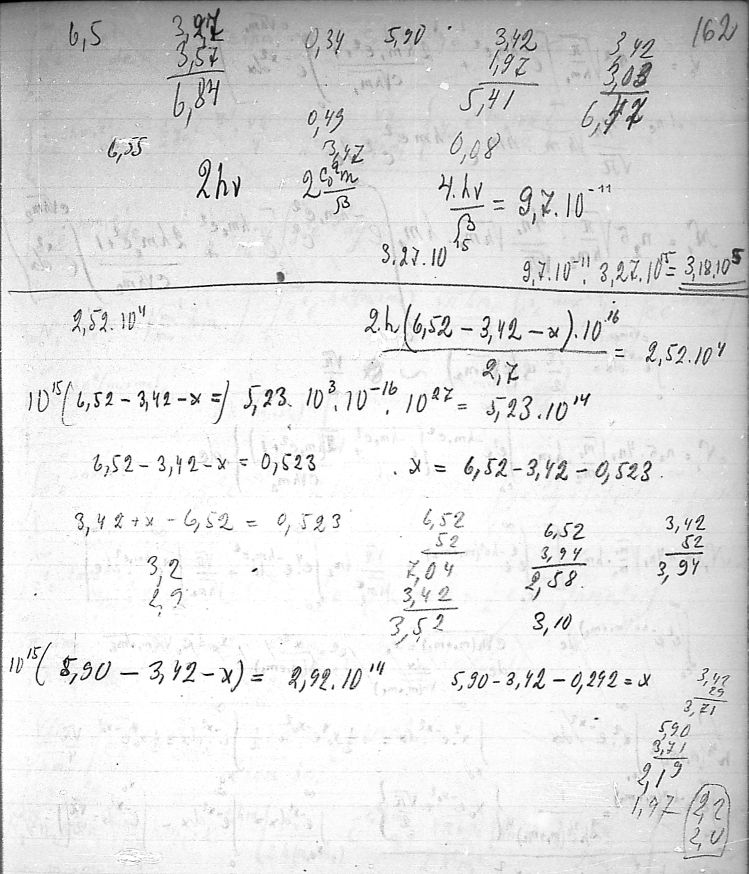 162
6,5 3,27 0,34 5,90 3,42 3,42
3,57 1,97 3,03
6,84 5,41
0,49
6,55 3,47 0,08
2hν 4.hν/√3 = 9,7.10⁻¹¹
3.27.10¹⁵ 9,7.10⁻¹¹. 3,27.10¹⁵ = 3,18.10⁵
2,52.10⁴ 2h(6,52 − 3,42 − x).10¹⁶/2,7 = 2,52.10⁴
10¹⁵(6,52 − 3,42 − x =) 5,23. 10³. 10⁻¹⁶. 10²⁷ = 5,23.10¹⁴
6,52 − 3,42 − x = 0,523 x = 6,52 − 3,42 − 0,523
3,42 + x − 6,52 = 0,523 6,52 6,52 3,42
52 3,94 52
3,2 7,04 2,58 3,94
2,9 3,42
3,52 3,10
10¹⁵(5,90 − 3,42 − x) = 2,92.10¹⁴ 5,90 − 3,42 − 0,292 = x 3,42
29
3,71
5,90
3,71
2,19
1,97 2,2
2,0